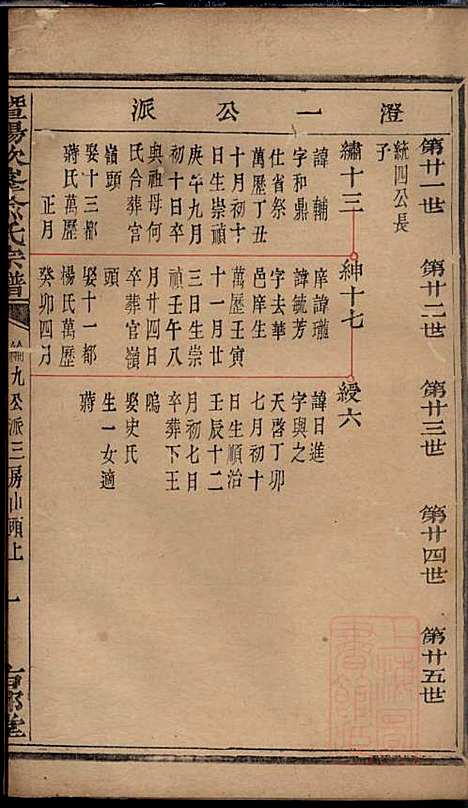 澄一公派
第廿一世
第廿二世
第廿三世
第廿四世
第廿五世
統四公長
子
繡十三
諱輔
字和鼎
仕省祭
萬歷丁丑
十月初十
日生崇禎
庚午九月
初十日卒
與祖母何
氏合葬官
嶺頭
娶十三都
蔣氏萬歷
正月
紳十七
庠諱瓏
諱毓芳
字去華
邑庠生
萬歷壬寅
十一月廿
三日生崇
禎壬午八
月廿四日
卒葬官嶺
頭
娶十一都
楊氏萬歷
癸卯四月
綬六
諱日進
字與之
天啓丁卯
七月初十
日生順治
壬辰十二
月初七日
卒葬下王
塢
娶史氏
生一女適
蔣
暨陽 氏宗譜
九公派三房山頭上
一